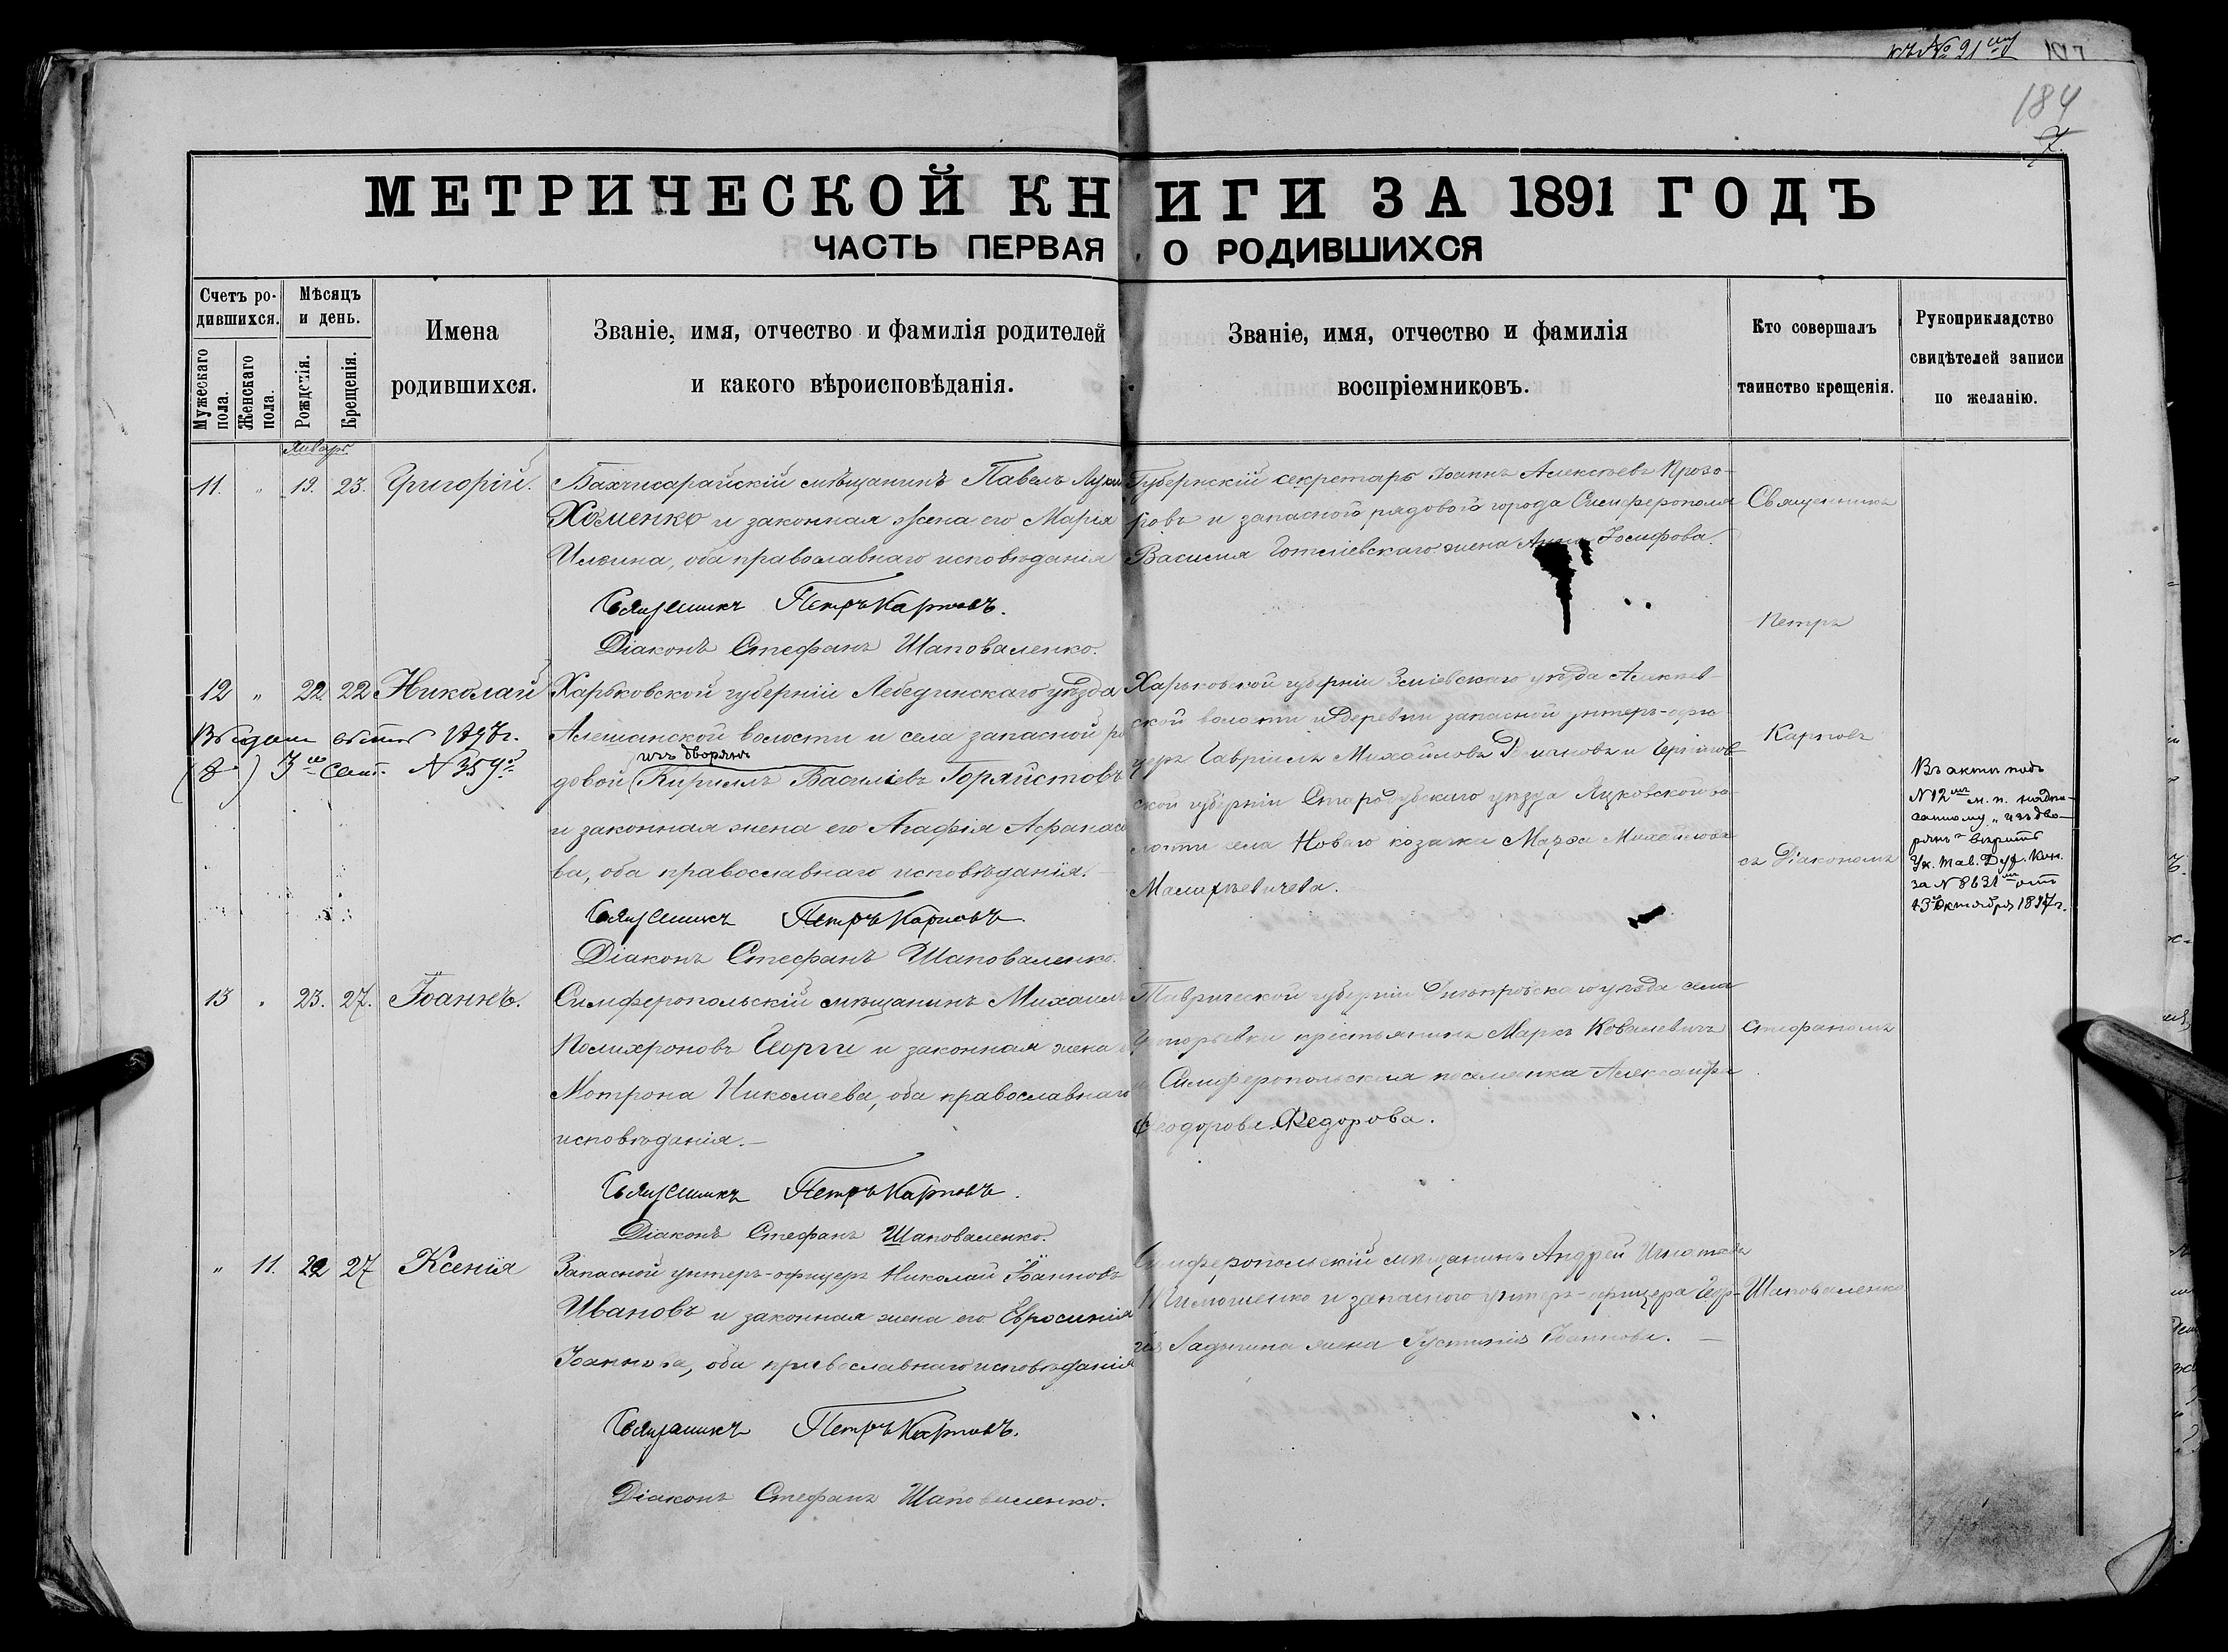 къ № 21
184
7.
МЕТРИЧЕСКОЙ КНИГИ ЗА 1891 ГОДЪ
ЧАСТЬ ПЕРВАЯ О РОДИВШИХСЯ
Счетъ родившихся.
Мужескаго пола.
Женскаго пола.
Мѣсяцъ и день.
Рожденія.
Крещенія.
Имена
родившихся.
Званіе, имя, отчество и фамилія родителей
и какого вѣроисповѣданія.
Званіе, имя, отчество и фамилія
воспріемниковъ.
Кто совершалъ
таинство крещенія.
Рукоприкладство
свидѣтелей записи
по желанію.
Январь
11. " 19. 23. Григорій.
Бахчисарайскій мѣщанинъ Павелъ
Хоменко и законная жена его Марія
Ильина, оба православнаго исповѣданія
Священникъ Петръ Карповъ.
Діаконъ Стефанъ Шаповаленко.
Губернскій секретарь Іоаннъ Алексѣевъ Прозо-
ровъ и запаснаго рядового города Симферополя
Василія жена Анна Іосифова.
12 " 22 22 Николай
Харьковской губерніи Лебединскаго уѣзда
Алешанской волости и села запасной ря
изъ дворянъ
довой Кириллъ Васильевъ Горяйстовъ
и законная жена его Агафія Афанась
ва, оба православнаго исповѣданія.
Священникъ Петръ Карповъ
Діаконъ Стефанъ Шаповаленко.
Харьковской губерніи Зміевскаго уѣзда Алексѣев-
ской волости и деревни запасной унтеръ-офи
церъ Гавріилъ Михайловъ Романовъ и Чернигов-
ской губерніи Стародубскаго уѣзда Лужковской во-
лости села Новаго козачка Марѳа Михайлова
13 " 23. 27. Іоаннъ.
Симферопольскій мѣщанинъ Михаилъ
Полихроновъ Георги и законная жена
Мотрона Николаева, оба православнаго
исповѣданія.
Священникъ Петръ Карповъ.
Діаконъ Стефанъ Шаповаленко.
Таврической губерніи Днѣпровскаго уѣзда села
крестьянинъ Маркъ Ковалевичъ
и Симферопольская поселянка Александра
Феодорова Федорова.
" 11. 22 27 Ксенія
Запасной унтеръ-офицеръ Николай Іоанновъ
Ивановъ и законная жена его Евросинія
Іоаннова, оба православнаго исповѣданія
Священникъ Петръ Карповъ.
Діаконъ Стефанъ Шаповаленко.
Симферопольскій мѣщанинъ Андрей Игнатовъ
и запаснаго унтеръ-офицера Геор-
гія Ладыгина жена Іустинія Іоаннова.
Священникъ
Петръ
Карповъ
съ Діакономъ
Стефаномъ
Шаповаленко
Въ актѣ подъ
№ 12 м. п. надпи-
санному "изъ дво-
рянъ" вѣрить
Ук. Тав. Дух. Кон.
за № 8631 отъ
13 Октября 1897 г.